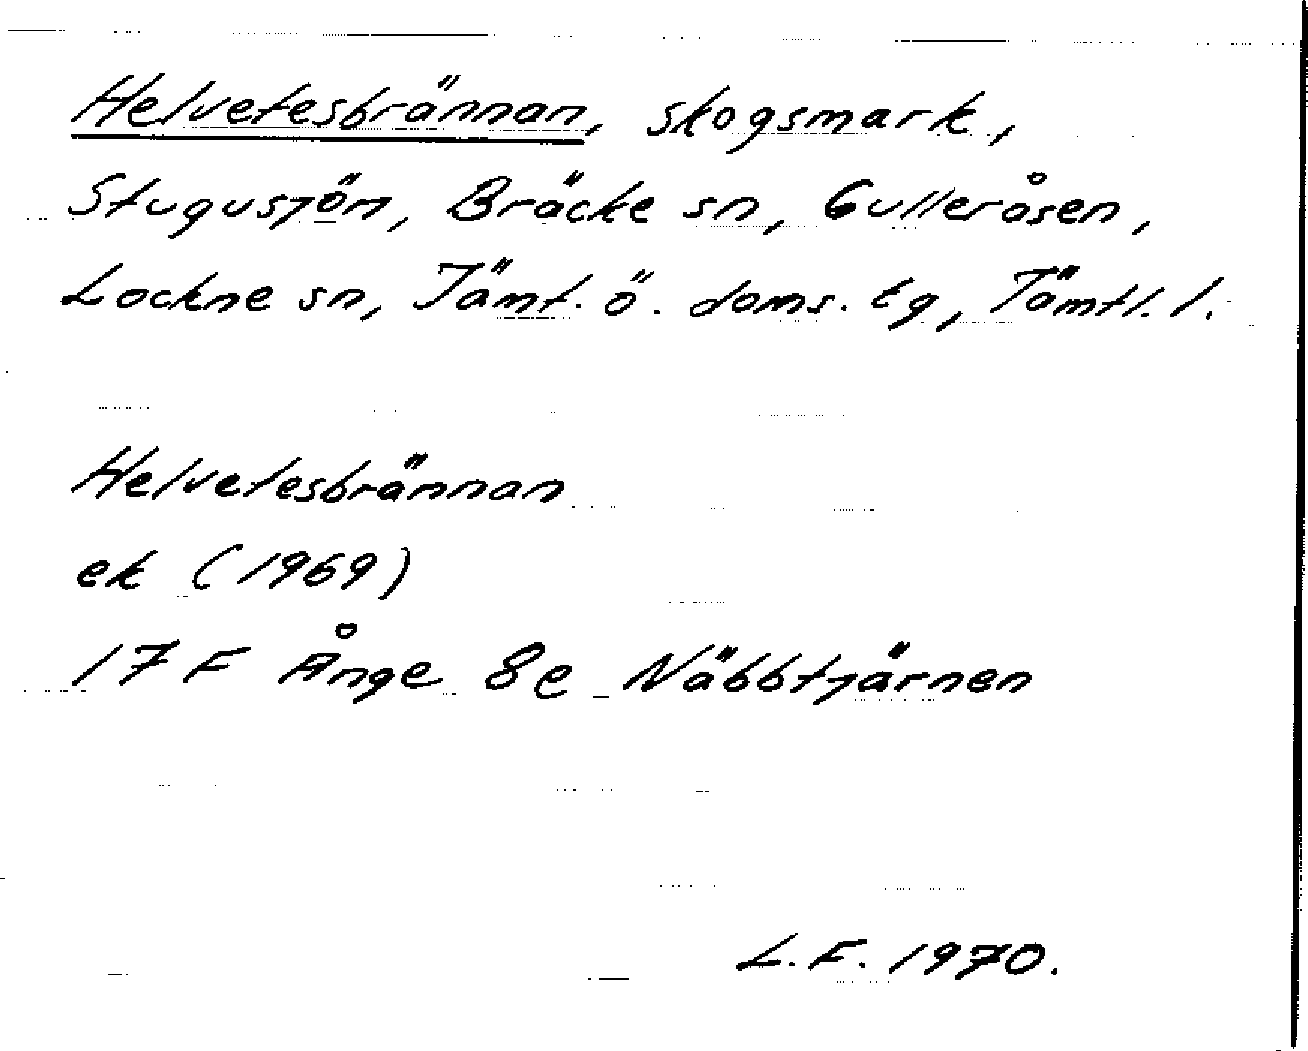 Helvetesbrännan, skogsmark,
Stugusjön, Bräcke sn, Gulleråsen,
Lockne sn, Jämt. ö. doms. tg, Jämtl. l.
Helvetesbrännan
ek (1969)
17 F Ånge 8e Näbbtjärnen
L.F. 1970.